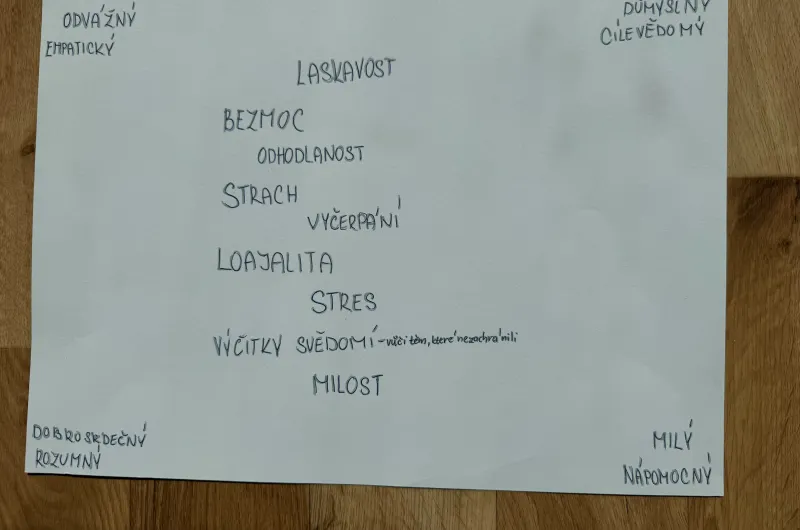 ODVÁŽNÝ
EMPATICKÝ
DŮMYSLNÝ
CÍLEVĚDOMÝ
LASKAVOST
BEZMOC
ODHODLANOST
STRACH
VYČERPÁNÍ
LOAJALITA
STRES
VÝČITKY SVĚDOMÍ - vůči těm, které nezachránili
MILOST
DOBROSRDEČNÝ
ROZUMNÝ
MILÝ
NÁPOMOCNÝ